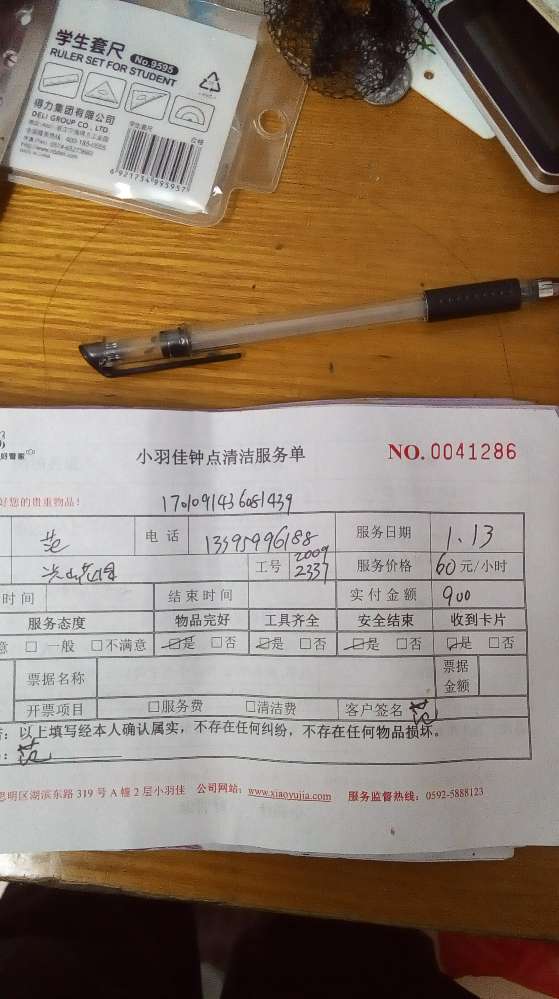 学生套尺 No.9595
RULER SET FOR STUDENT
得力集团有限公司
DELI GROUP CO., LTD
学生套尺
6921734995957
好管家
小羽佳钟点清洁服务单 NO. 0041286
好您的贵重物品!
1701091436081439
电话 13395996188 服务日期 1.13
工号 2009 2337 服务价格 60元/小时
时间 结束时间 实付金额 900
服务态度 物品完好 工具齐全 安全结束 收到卡片
意 □一般 □不满意 □是 □否 □是 □否 □是 □否 □是 □否
票据名称 票据金额
开票项目 □服务费 □清洁费 客户签名
以上填写经本人确认属实，不存在任何纠纷，不存在任何物品损坏。
思明区湖滨东路 319 号 A 幢 2 层小羽佳 公司网站：www.xiaoyujia.com 服务监督热线：0592-5888123